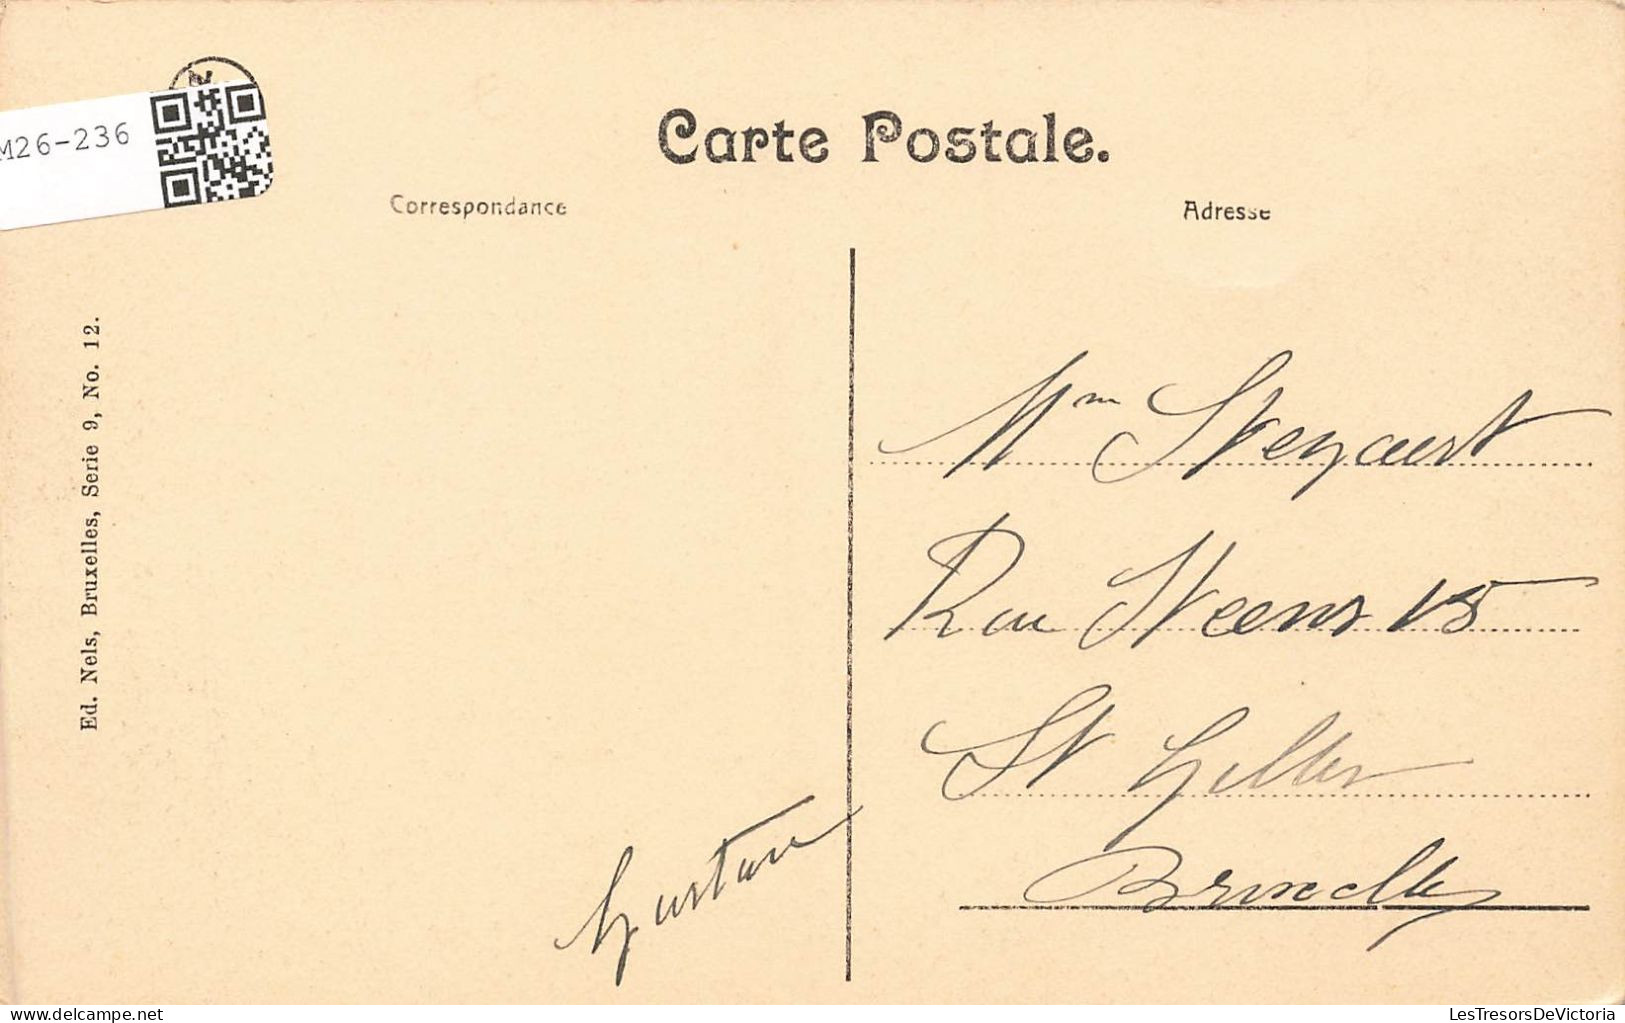 M26-236
Carte Postale.
Correspondance
Adresse
Ed. Nels, Bruxelles, Serie 9, No. 12.
Mm Steyaert
Rue Steens 15
St Gilles
Bruxelles
Gustave
delcampe.net
LesTresorsDeVictoria